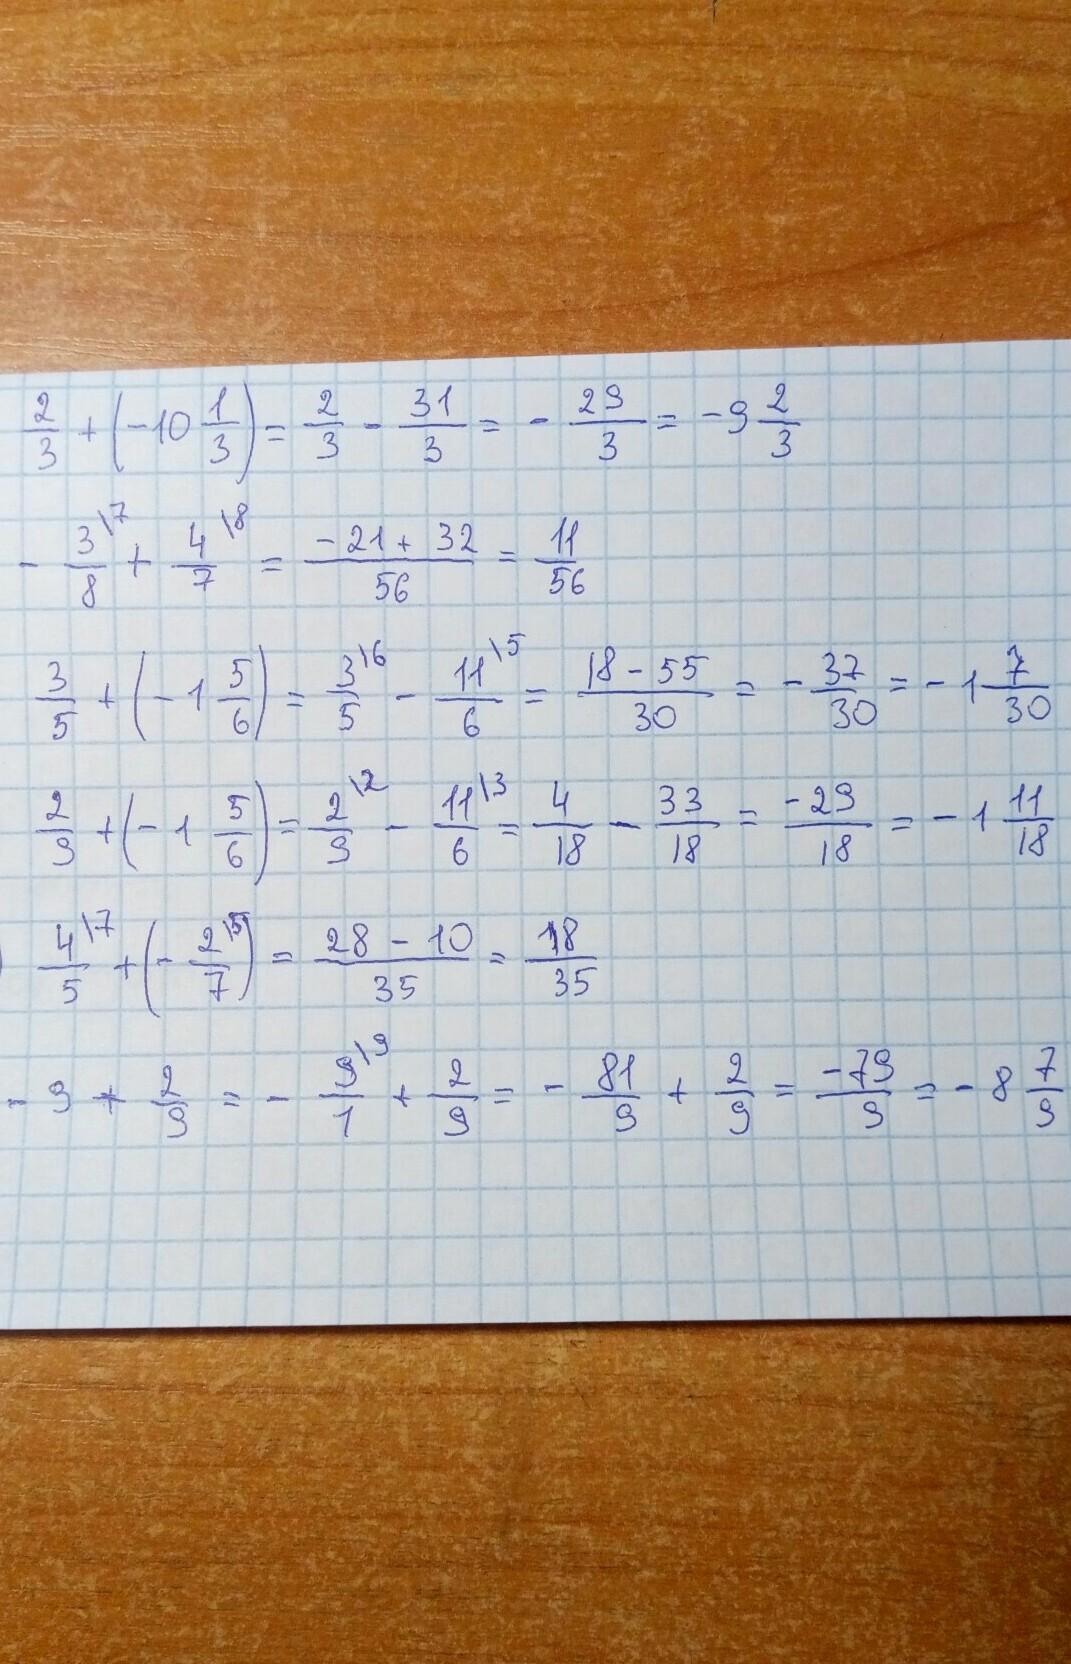 2/3 + (-10 1/3) = 2/3 - 31/3 = - 29/3 = -9 2/3
- 3\7/8 + 4\8/7 = -21+32/56 = 11/56
3/5 + (-1 5/6) = 3\6/5 - 11\5/6 = 18-55/30 = - 37/30 = -1 7/30
2/9 + (-1 5/6) = 2\2/9 - 11\3/6 = 4/18 - 33/18 = -29/18 = -1 11/18
) 4\7/5 + (- 2\5/7) = 28-10/35 = 18/35
- 9 + 2/9 = - 9\9/1 + 2/9 = - 81/9 + 2/9 = -79/9 = -8 7/9